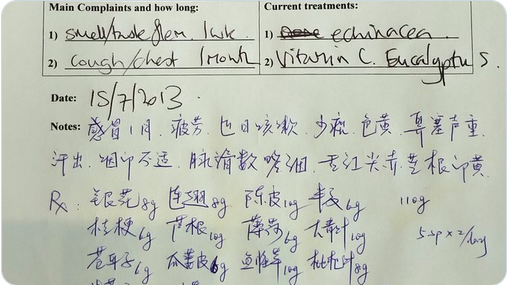 Main Complaints and how long: Current treatments:
1) smell/taste 1wk 1) echinacea
2) cough/chest 1 month 2) Vitamin C. Eucalyptus
Date: 15/7/2013.
Notes: 感冒1月. 疲劳. 日咳嗽. 少痰. 色黄. 鼻塞声重.
汗出. 咽不适. 脉滑数略细. 舌红尖赤. 苔根黄.
Rx: 银花8g 连翘8g 陈皮10g 6g 110g
桔梗6g 芦根10g 薄荷6g 大青叶10g
苍耳子6g 瓜蒌皮6g 鱼腥草10g 枇杷叶8g